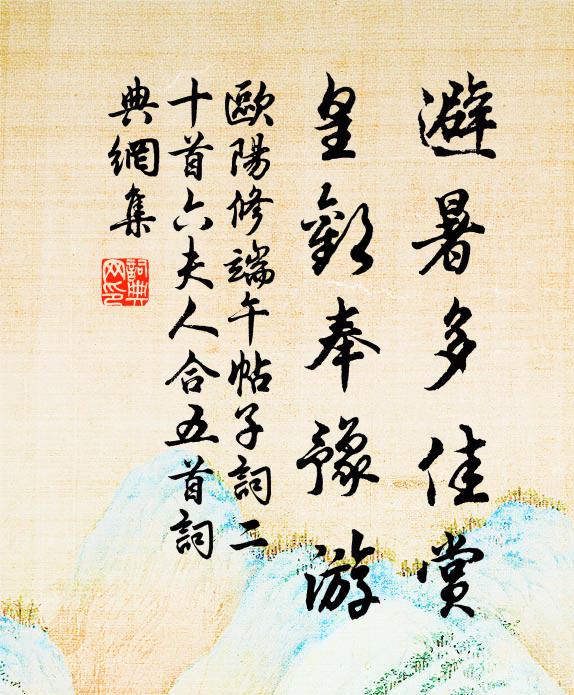 避暑多佳赏
皇歡奉豫游
歐陽修端午帖子詞二
十首六夫人合五首詞
典網集
詞典網印